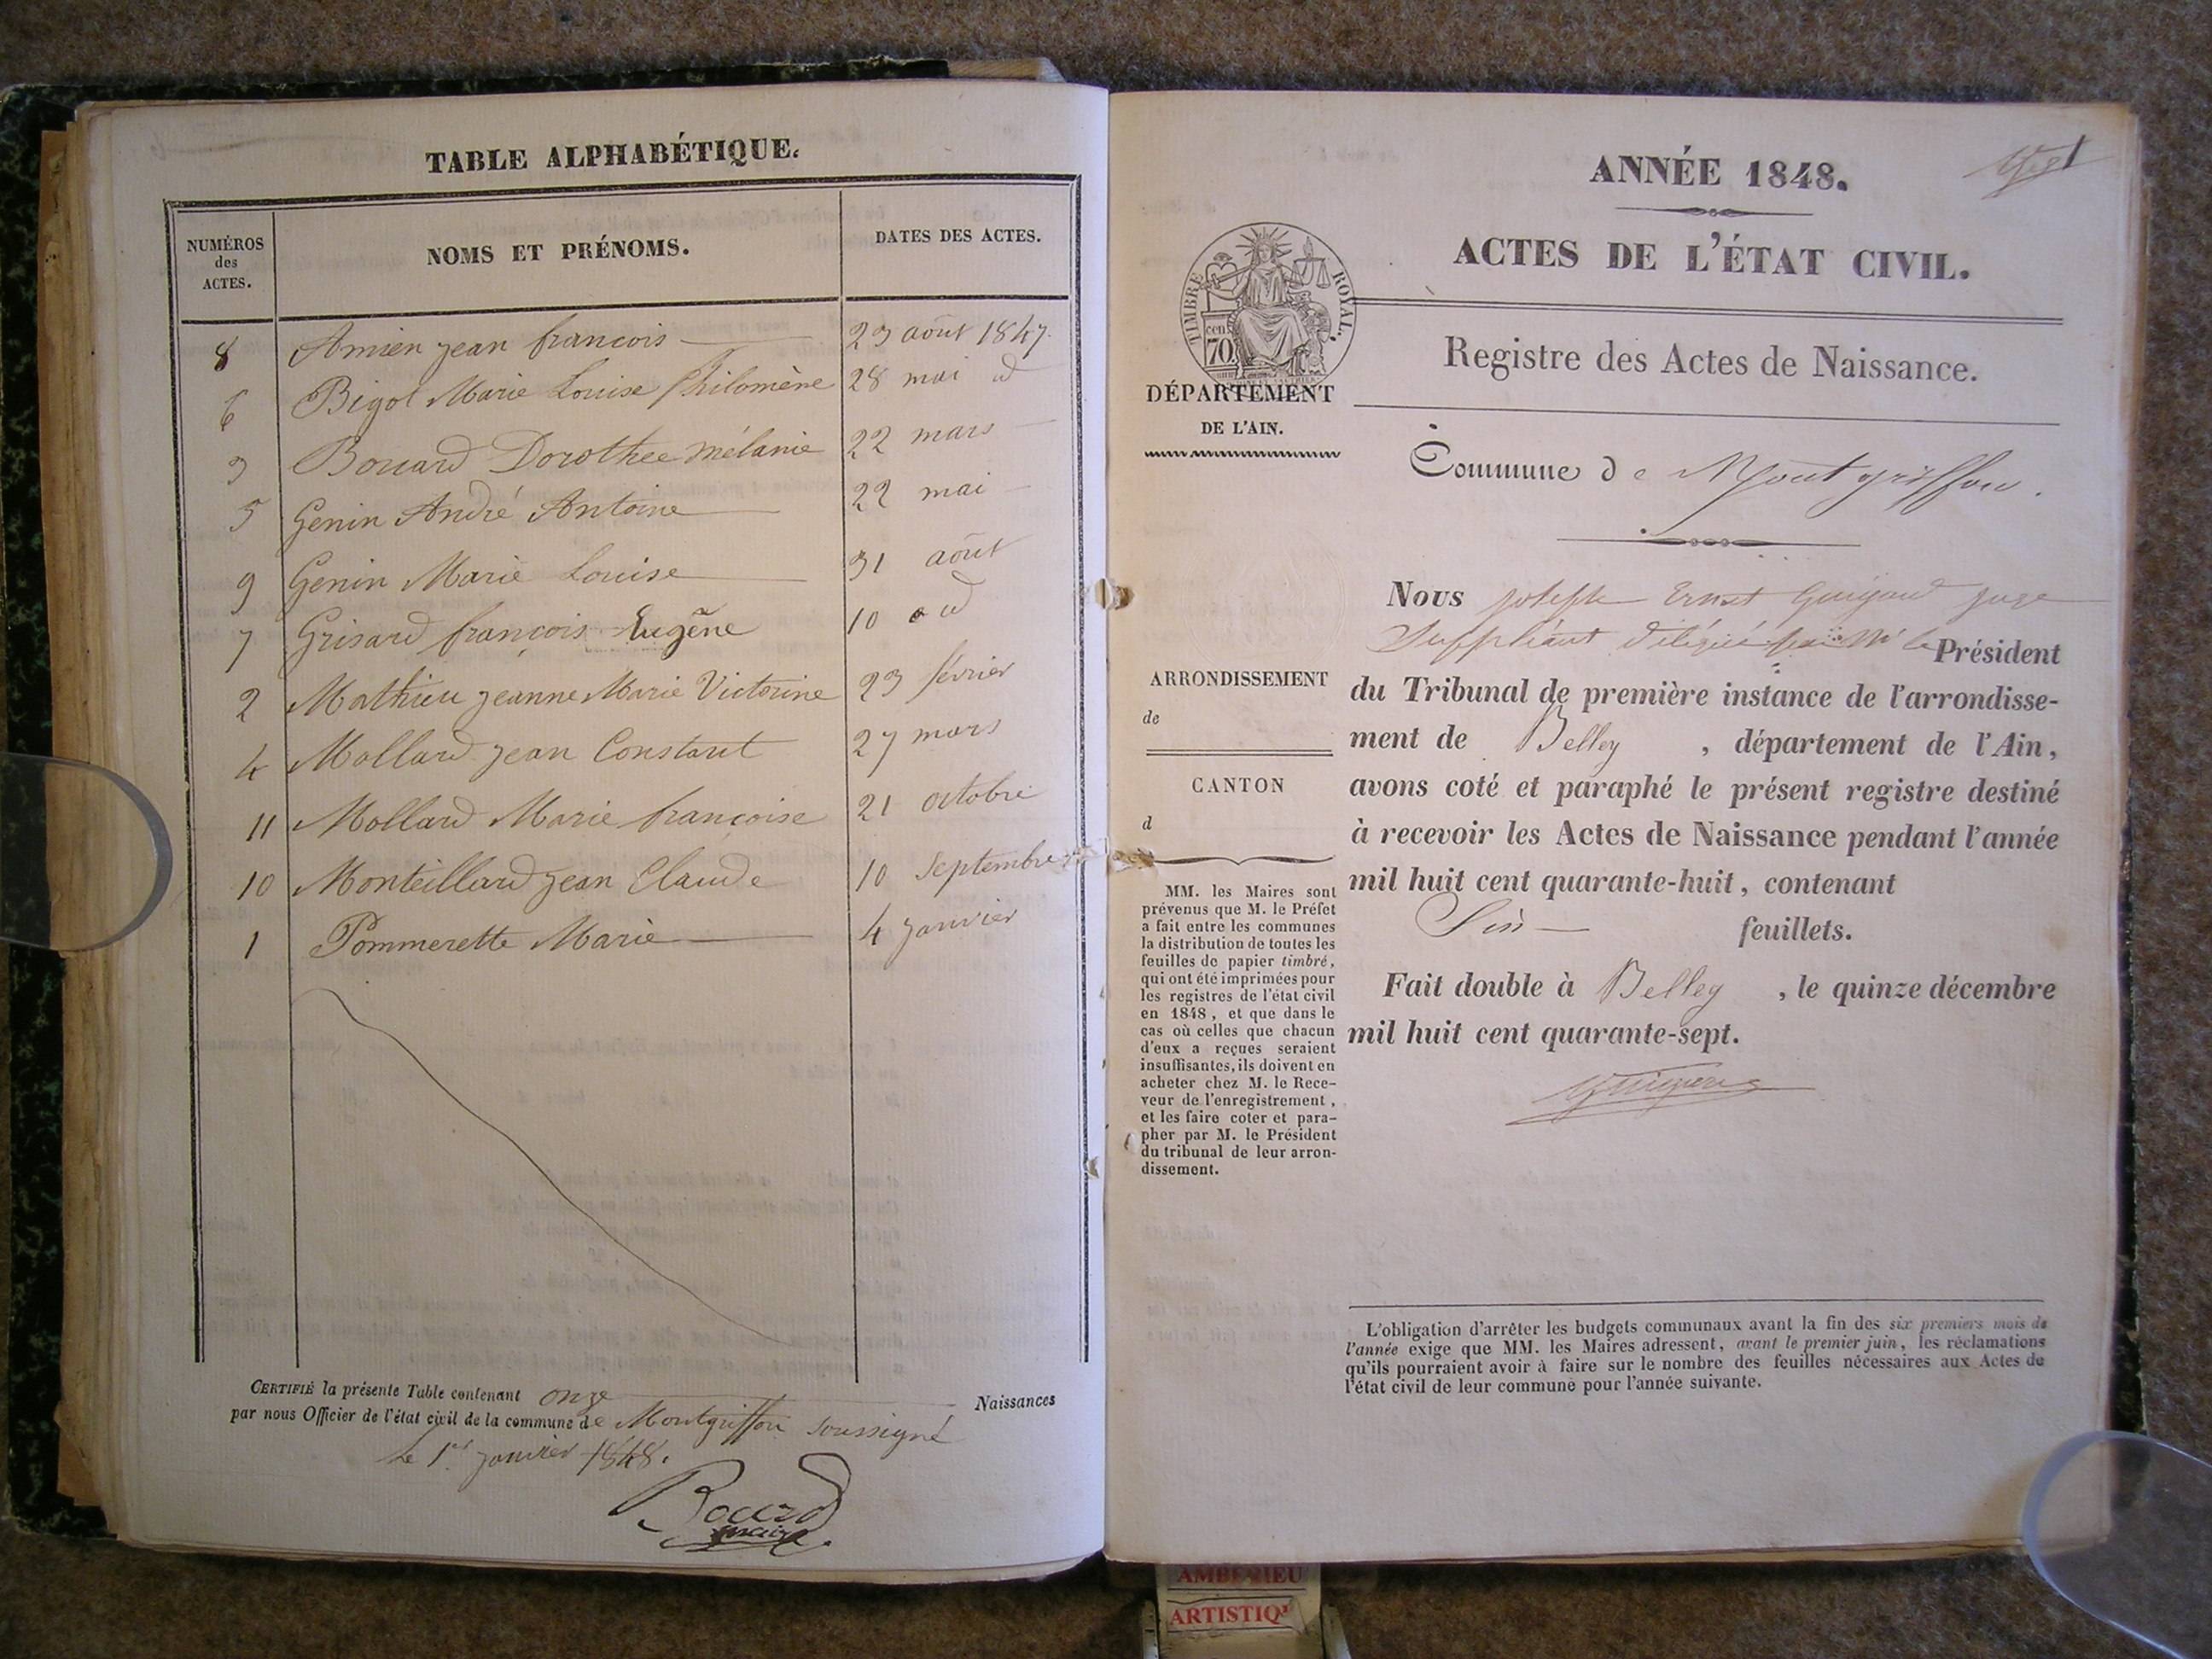 TABLE ALPHABÉTIQUE.
NUMÉROS
des
ACTES.
NOMS ET PRÉNOMS.
DATES DES ACTES.
8 Amien jean francois 23 aout 1847.
6 Bigot Marie Louise Philomène 28 mai id
3 Bouard Dorothee mélanie 22 mars
5 Genin André Antoine 22 mai
9 Genin Marie Louise 31 aout
7 Grisard françois Eugène 10 id
2 Mathieu jeanne Marie Victorine 23 février
4 Mollard jean Constant 27 mars
11 Mollard Marie françoise 21 octobre
10 Monteillard jean Claude 10 septembre
1 Pommerette Marie 4 janvier
CERTIFIÉ la présente Table contenant onze Naissances
par nous Officier de l'état civil de la commune de Montgriffon soussigné
le 1er janvier 1848.
maire
ANNÉE 1848.
ACTES DE L'ÉTAT CIVIL.
TIMBRE ROYAL.
cen
70
Registre des Actes de Naissance.
DÉPARTEMENT
DE L'AIN.
Commune de Montgriffon.
ARRONDISSEMENT
de
CANTON
d
MM. les Maires sont
prévenus que M. le Préfet
a fait entre les communes
la distribution de toutes les
feuilles de papier timbré,
qui ont été imprimées pour
les registres de l'état civil
en 1848, et que dans le
cas où celles que chacun
d'eux a reçues seraient
insuffisantes, ils doivent en
acheter chez M. le Rece-
veur de l'enregistrement,
et les faire coter et para-
pher par M. le Président
du tribunal de leur arron-
dissement.
Nous joseph Ernest juge
Suppléant délégué par Mr le Président
du Tribunal de première instance de l'arrondisse-
ment de Belley, département de l'Ain,
avons coté et paraphé le présent registre destiné
à recevoir les Actes de Naissance pendant l'année
mil huit cent quarante-huit, contenant
Six feuillets.
Fait double à Belley, le quinze décembre
mil huit cent quarante-sept.
L'obligation d'arrêter les budgets communaux avant la fin des six premiers mois de
l'année exige que MM. les Maires adressent, avant le premier juin, les réclamations
qu'ils pourraient avoir à faire sur le nombre des feuilles nécessaires aux Actes de
l'état civil de leur commune pour l'année suivante.
AMBERIEU
ARTISTIQ